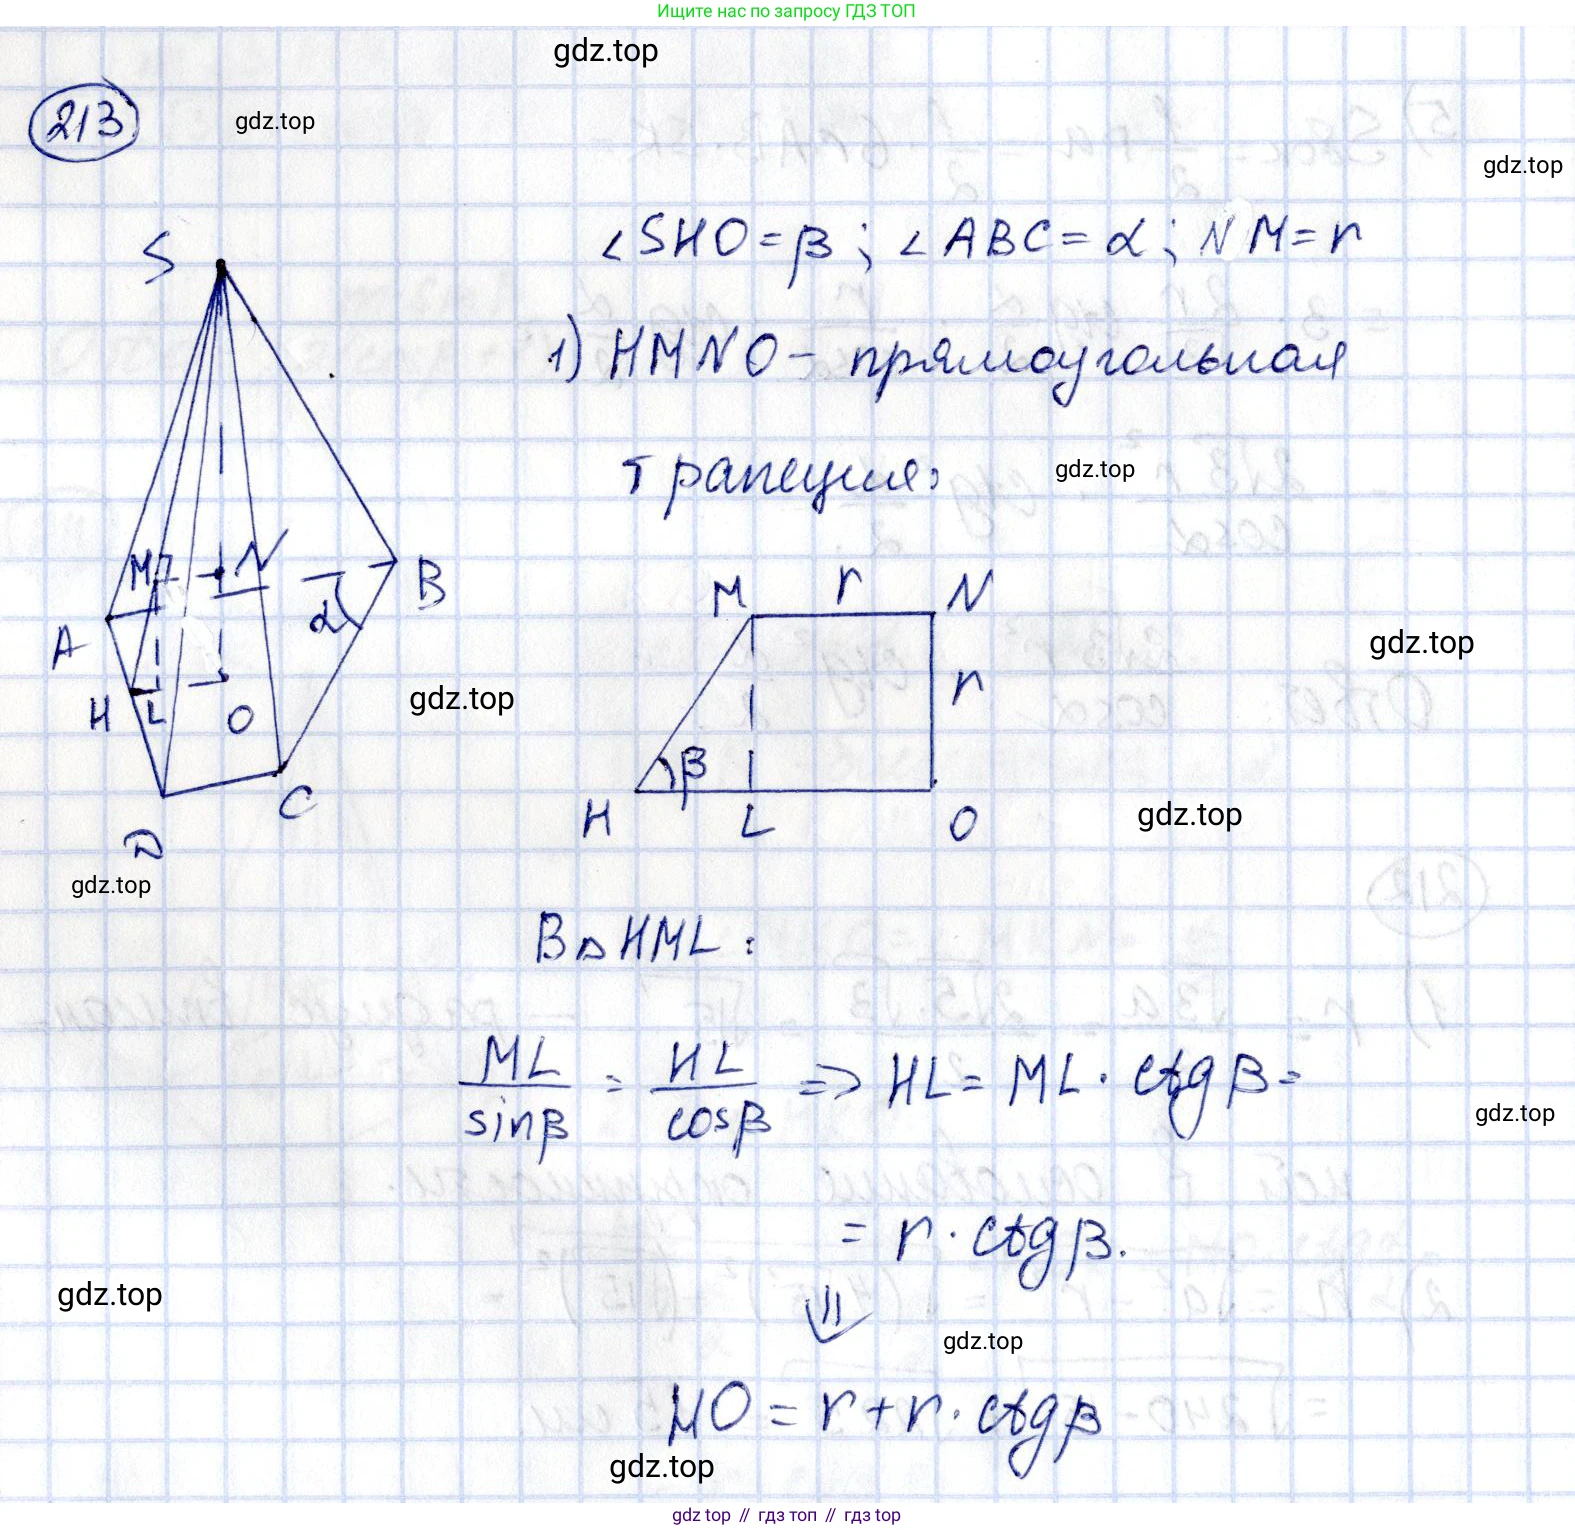 Ищите нас по запросу ГДЗ ТОП
gdz.top
213
gdz.top
gdz.top
∠SHO=β; ∠ABC=α; NM=r
1) HMNO – прямоугольная
трапеция:
gdz.top
S
M N B
α
A
H L O
D C
gdz.top
M r N
r
β
H L O
gdz.top
gdz.top
gdz.top
В △HML:
ML/sinβ = HL/cosβ => HL = ML · ctgβ =
gdz.top
= r · ctgβ.
gdz.top
⇓
gdz.top
HO = r + r · ctgβ
gdz.top
gdz top // гдз топ // gdz top